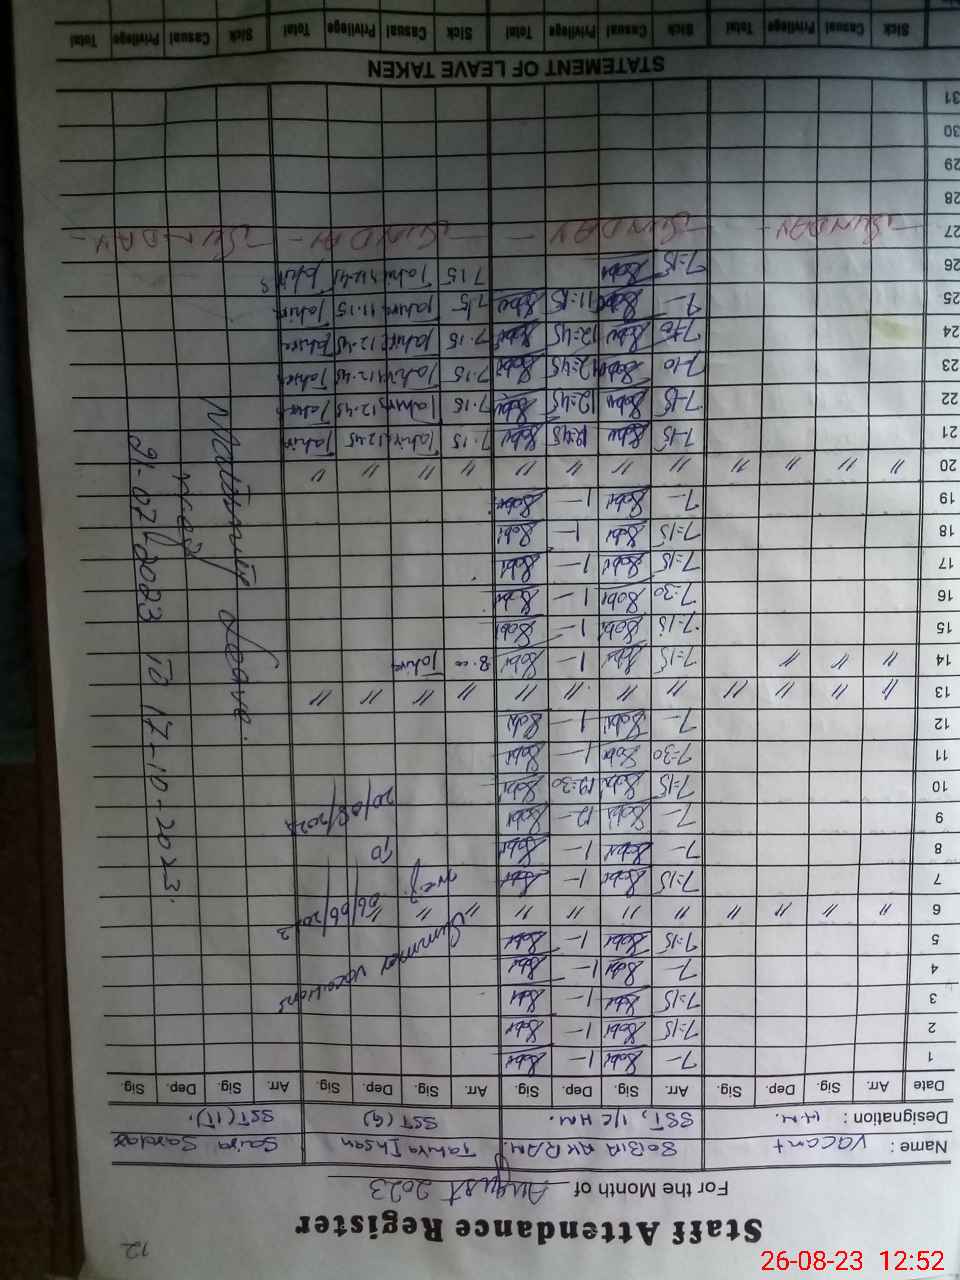 12
Staff Attendance Register
For the Month of August 2023
Name : Vacant SOBIA AKRAM. Tahira Ihsan Saira Sardar
Designation : H.M. SST, I/C HM. SST (G) SST (IT).
Date Arr. Sig. Dep. Sig. Arr. Sig. Dep. Sig. Arr. Sig. Dep. Sig. Arr. Sig. Dep. Sig.
1 7- Sobi 1- Sobi
2 7=15 Sobi 1- Sobi
3 7=15 Sobi 1- Sobi
4 7- Sobi 1- Sobi
5 7=15 Sobi 1- Sobi
6 〃 〃 〃 〃 〃 〃 〃 〃 〃 〃 〃
7 7=15 Sobi 1- Sobi
8 7- Sobi 1- Sobi
9 7- Sobi 12- Sobi
10 7=15 Sobi 12=30 Sobi
11 7=30 Sobi 1- Sobi
12 7- Sobi 1- Sobi
13 〃 〃 〃 〃 〃 〃 〃 〃 〃 〃 〃 〃
14 〃 〃 〃 7=15 Sobi 1- Sobi 8.00 Tahira
15 7=15 Sobi 1- Sobi
16 7=30 Sobi 1- Sobi
17 7=15 Sobi 1- Sobi
18 7=15 Sobi 1- Sobi
19 7- Sobi 1- Sobi
20 〃 〃 〃 〃 〃 〃 〃 〃 〃 〃 〃 〃
21 7-15 Sobi 12=45 Sobi 7.15 Tahira 12.45 Tahira
22 7-15 Sobi 12=45 Sobi 7.15 Tahira 12.45 Tahira
23 7-10 Sobi 12=45 Sobi 7.15 Tahira 12.45 Tahira
24 7-10 Sobi 12=45 Sobi 7.15 Tahira 12.45 Tahira
25 7- Sobi 11=15 Sobi 7.15 Tahira 11.15 Tahira
26 7=15 Sobi 7.15 Tahira 12.45 Tahira
27 SUNDAY - SUNDAY - SUNDAY - SUNDAY -
28
29
30
31
Summer vacations
w.e.f.
06/06/2023
TO
20/08/2023
Maternity Leave.
w.e.f
To 17-10-2023.
STATEMENT OF LEAVE TAKEN
Sick Casual Privilege Total Sick Casual Privilege Total Sick Casual Privilege Total Sick Casual Privilege Total
26-08-23 12:52